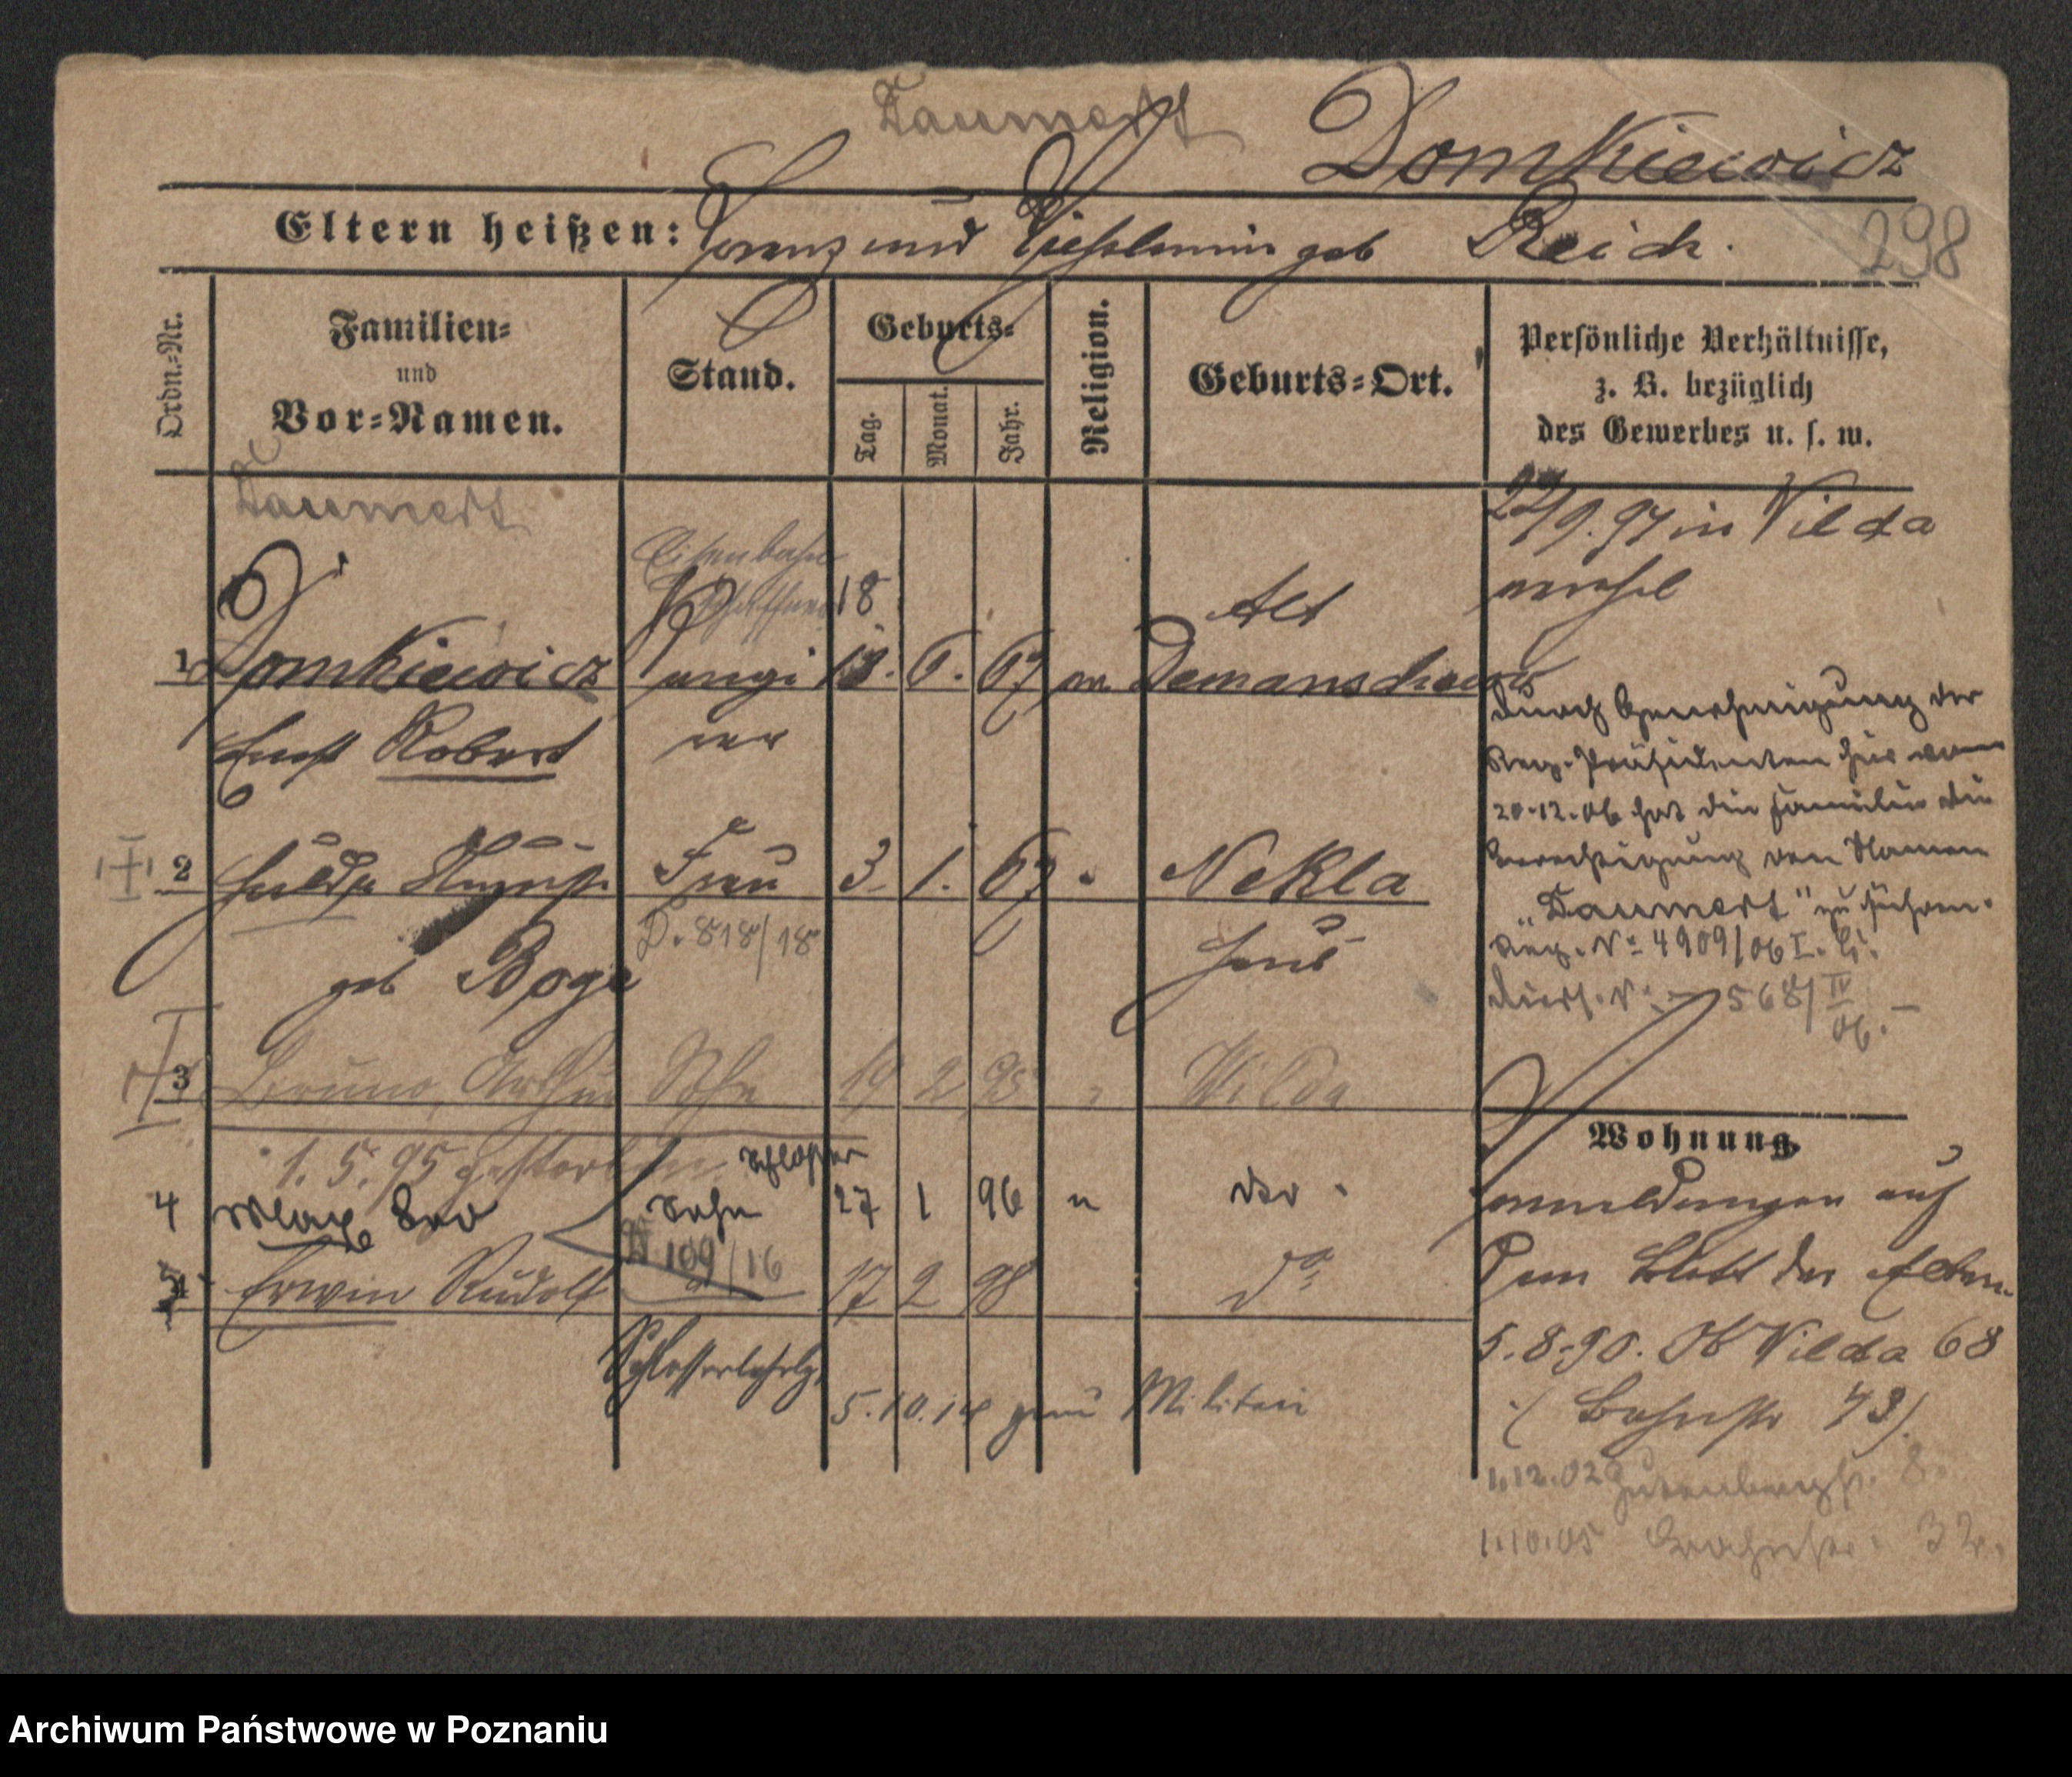 Daumert
Domkiewicz
298
Eltern heißen: Franz und geb Reich.
Ordn.-Nr.
Familien- und Vor-Namen.
Stand.
Geburts-
Tag.
Monat.
Jahr.
Religion.
Geburts-Ort.
Persönliche Verhältnisse,
z. B. bezüglich
des Gewerbes u. s. w.
Daumert
Eisenbahn
Schaffner 18
Alt
1 Domkiewicz 6. 67 Demanschewo
Ernst Robert
2 Hulda August. Frau 3. 1. 69 Nekla
geb Boge
D. 818/18
Hauld
3 Bruno, Arthur Sohn 19 2 95 Wilda
1. 5. 95 gestorben
Schlosser
4 Max Leo Sohn 27 1 96 " do
D 109/16
5 Erwin Rudolf 17 2 98 do
Schlosserlehrlg.
5.10.14 zum Militär
22/9. 97 in Vilda
durch Genehmigung des
Reg.-Präsidenten hier vom
20.12.06 hat die Familie die
Berechtigung den Namen
„Daumert" zu führen.
Reg. No 4909/06 I.
568/IV 06.
Wohnung.
anmeldungen auf
dem Blatt der Eltern.
5.8.90. Ob Vilda 68
(Bahnstr 43).
1.12.02 Gutenbergstr. 8.
1.10.05 32.
Archiwum Państwowe w Poznaniu